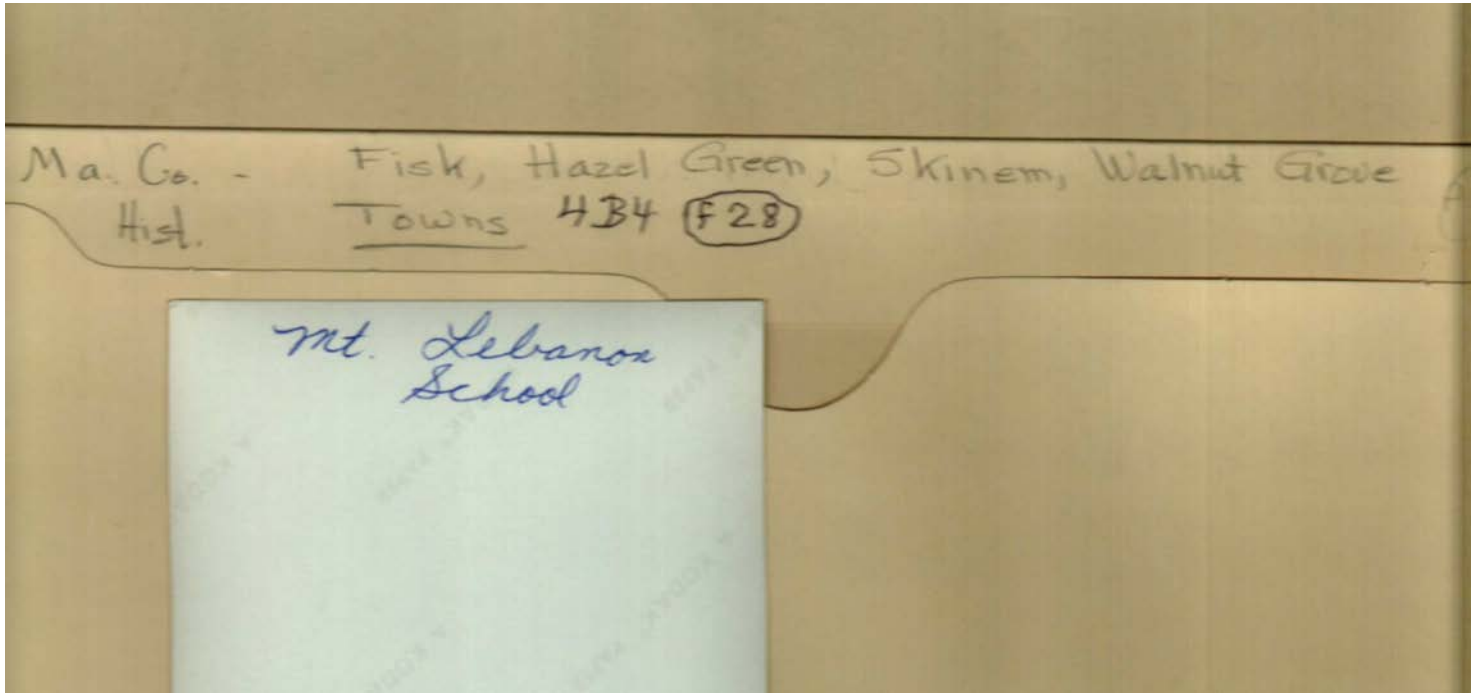 Ma. Co. - Fisk, Hazel Green, Skinem, Walnut Grove
Hist. Towns 4B4 F28
Mt. Lebanon
School